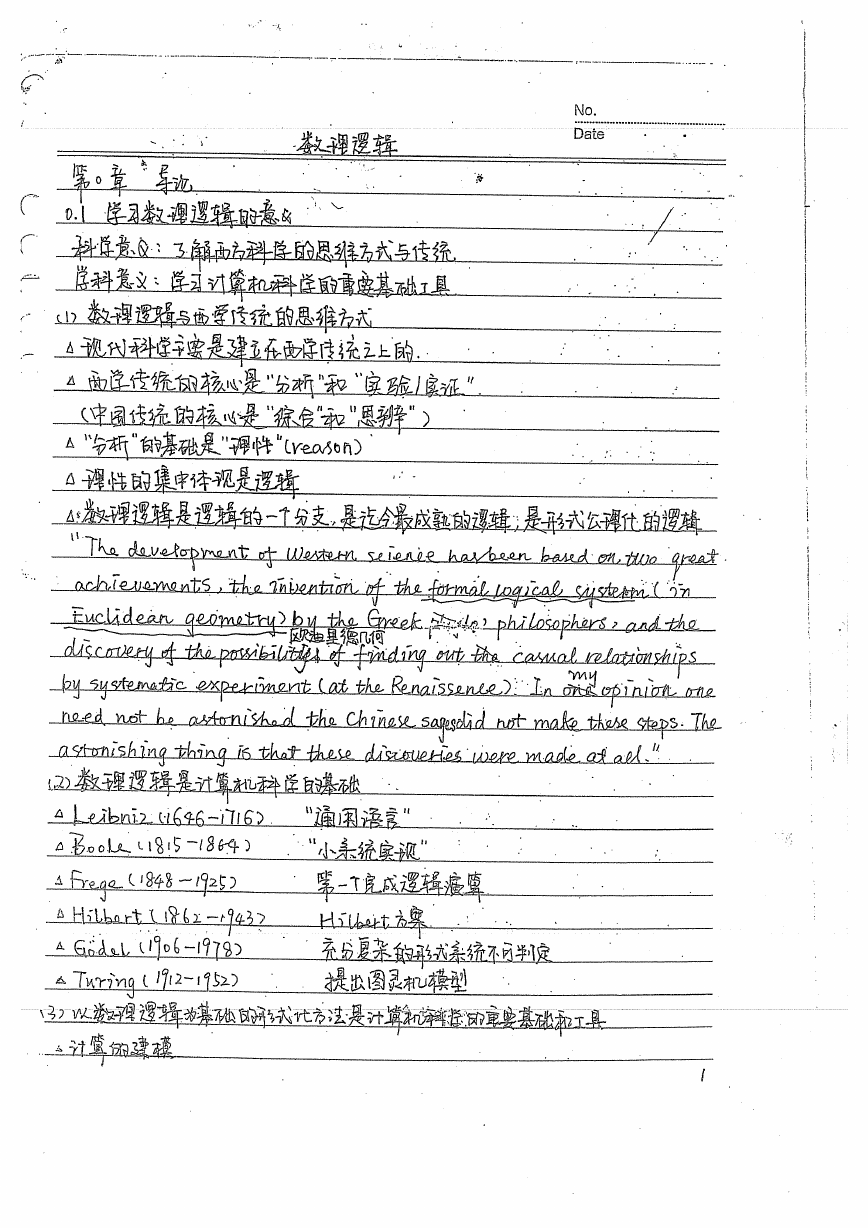 No.
Date
数理逻辑
第0章 导论
0.1 学习数理逻辑的意义
科学意义：了解西方科学的思维方式与传统
学科意义：学习计算机科学的重要基础工具
(1) 数理逻辑与西学传统的思维方式
△ 现代科学主要是建立在西学传统之上的.
△ 西学传统的核心是"分析"和"实验/实证".
(中国传统的核心是"综合"和"思辨")
△ "分析"的基础是"理性"(reason)
△ 理性的集中体现是逻辑
△ 数理逻辑是逻辑的一个分支,是迄今最成熟的逻辑,是形式公理化的逻辑
"The development of Western science has been based on two great
achievements, the invention of the formal logical system (in
Euclidean geometry) by the Greek philosophers, and the
欧几里德几何
discovery of the possibilities of finding out the casual relationships
my
by systematic experiment (at the Renaissence). In one opinion one
need not be astonished the Chinese sages did not make these steps. The
astonishing thing is that these discoveries were made at all."
(2) 数理逻辑是计算机科学的基础
△ Leibniz (1646-1716) "通用语言"
△ Boole (1815-1864) "小系统实现"
△ Frege (1848-1925) 第一个完成逻辑演算
△ Hilbert (1862-1943) Hilbert方案
△ Gödel (1906-1978) 充分复杂的形式系统不可判定
△ Turing (1912-1952) 提出图灵机模型
(3) 以数理逻辑为基础的形式化方法是计算机科学的重要基础和工具
△ 计算的建模
1